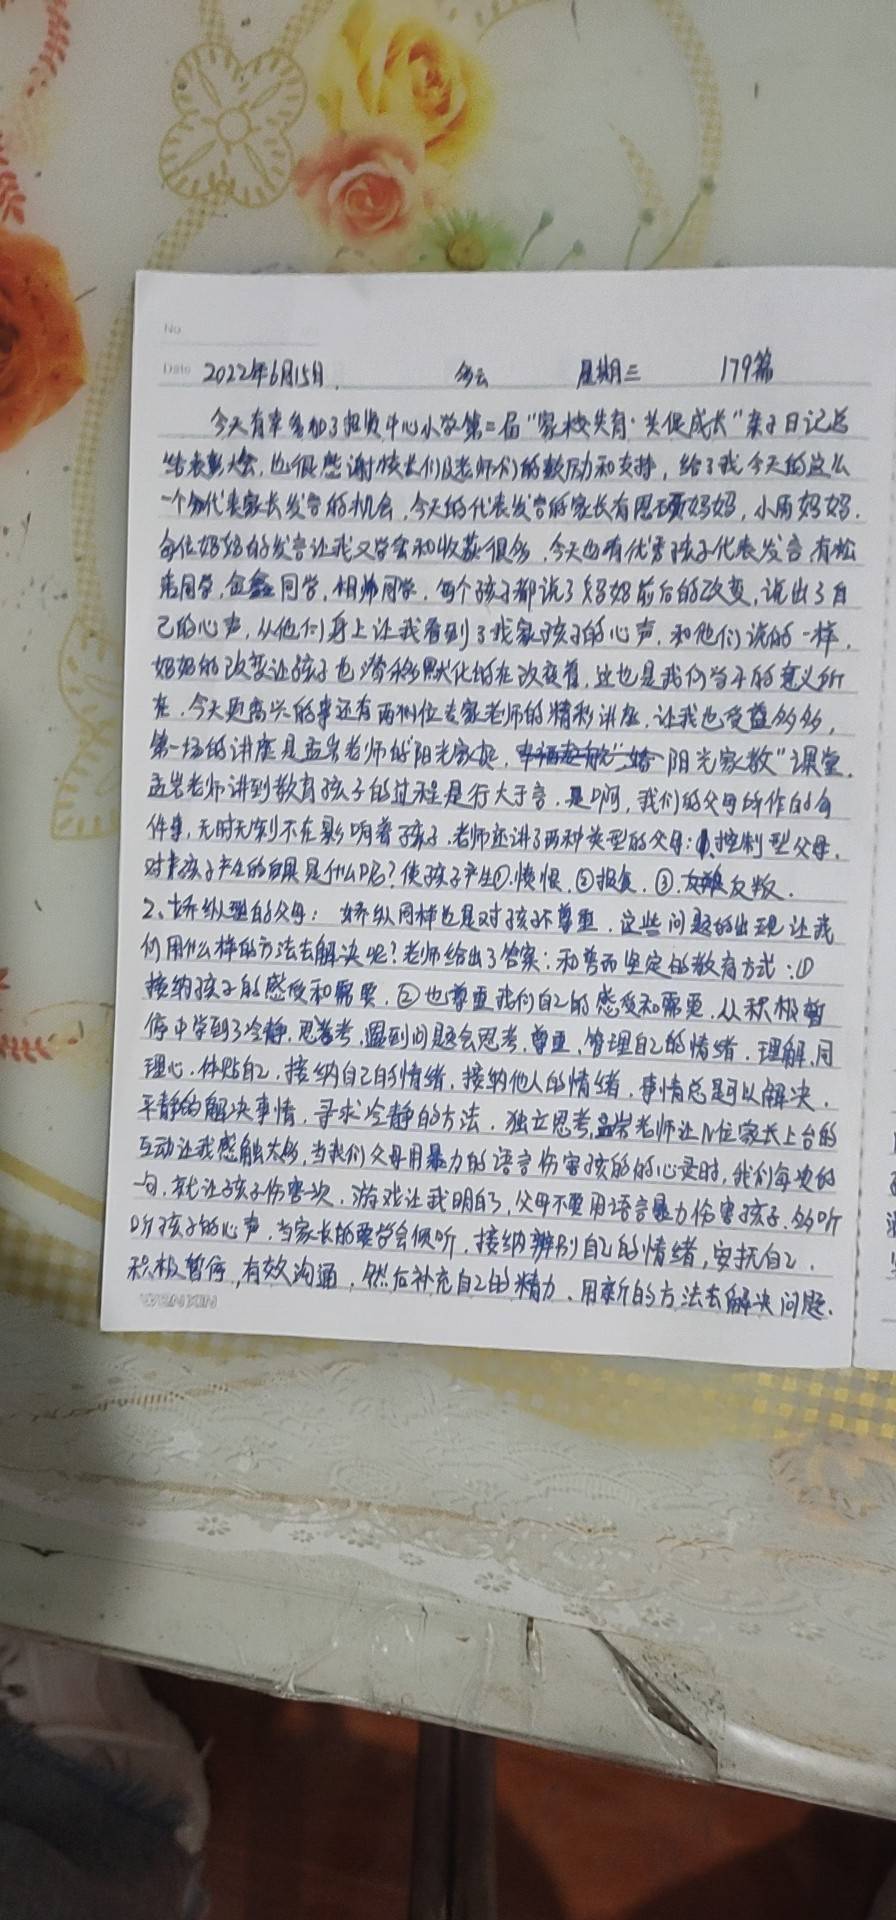 No
Date 2022年6月15日. 多云 星期三 179篇
今天有幸参加了招贤中心小学第二届“家校共育·共促成长”亲子日记总
结表彰大会,也很感谢校长们及老师们的鼓励和支持,给了我今天的这么
一个为代表家长发言的机会,今天的代表发言的家长有思硕妈妈,小雨妈妈.
每位妈妈的发言让我又学会和收获很多,今天也有优秀孩子代表发言,有
同学,金鑫同学,同学,每个孩子都说了妈妈前后的改变,说出了自
己的心声,从他们身上让我看到了我家孩子的心声,和他们说的一样,
妈妈的改变让孩子也潜移默化的在改变着,这也是我们学习的意义所
在,今天更高兴的事还有两位专家老师的精彩讲座,让我也受益多多,
第一场的讲座是孟岩老师的“阳光家庭,阳光家教”课堂.
孟岩老师讲到教育孩子的过程是行大于言,是啊,我们的父母所作的每
件事,无时无刻不在影响着孩子,老师还讲了两种类型的父母:1、控制型父母,
对孩子产生的后果是什么呢?使孩子产生①.愤恨,②报复,③.反叛.
2、娇纵型的父母:娇纵同样也是对孩子不尊重,这些问题的出现让我
们用什么样的方法去解决呢?老师给出了答案:和善而坚定的教育方式:①
接纳孩子的感受和需要,②也尊重我们自己的感受和需要,从积极暂
停中学到了冷静,思考,遇到问题会思考,尊重,管理自己的情绪,理解,同
理心,体贴自己,接纳自己的情绪,接纳他人的情绪,事情总是可以解决,
平静的解决事情,寻求冷静的方法,独立思考,孟岩老师让几位家长上台的
互动让我感触太多,当我们父母用暴力的语言伤害孩的的心灵时,我们每次的
一句,就让孩子伤害一次,游戏让我明白了,父母不要用语言暴力伤害孩子,多听
听孩子的心声,当家长的要学会倾听,接纳辨别自己的情绪,安抚自己,
积极暂停,有效沟通,然后补充自己的精力,用新的方法去解决问题.
WENXIN